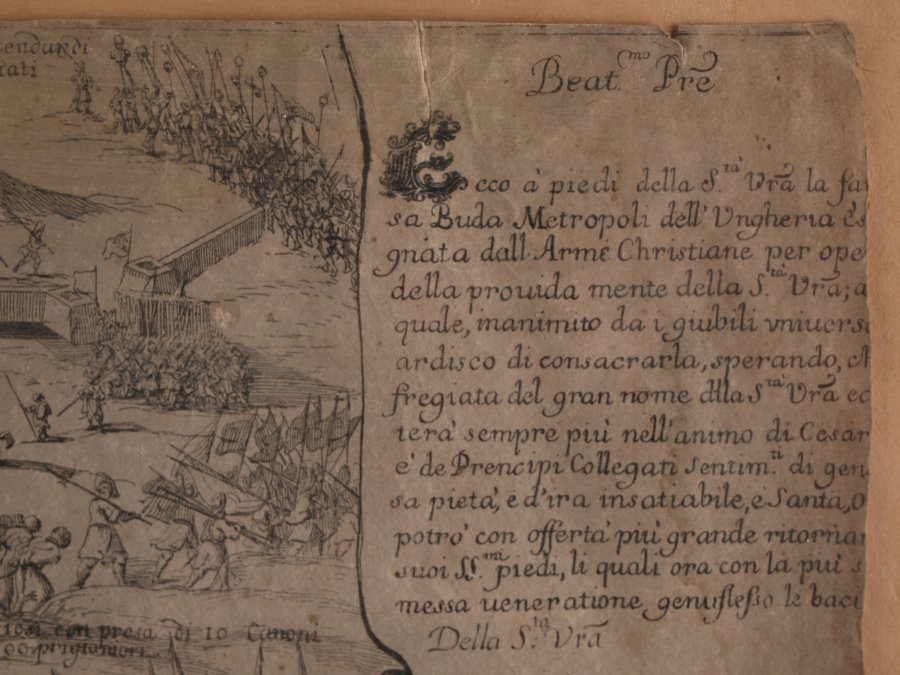 Beat.mo Prẽ
Ecco à piedi della S.tà Vrã la fa
sa Buda Metropoli dell'Vngheria és
gnata dall'Arme Christiane per ope
della prouida mente della S.tà Vrã; a
quale, inanimito da i giubili vniuers
ardisco di consacrarla, sperando, ch
fregiata del gran nome dlla S.tà Vrã ec
terà sempre più nell'animo di Cesar
è de Prencipi Collegati Sentim.ti di gen
sa pietà, e d'ira insatiabile, e Santa, O
potrò con offerta più grande ritorna
suoi SS.mi piedi, li quali ora con la più s
messa ueneratione, genuflesso le baci
Della S.tà Vrã
endandi
iati
iosi con presa di 10 Canoni
00 prigionieri